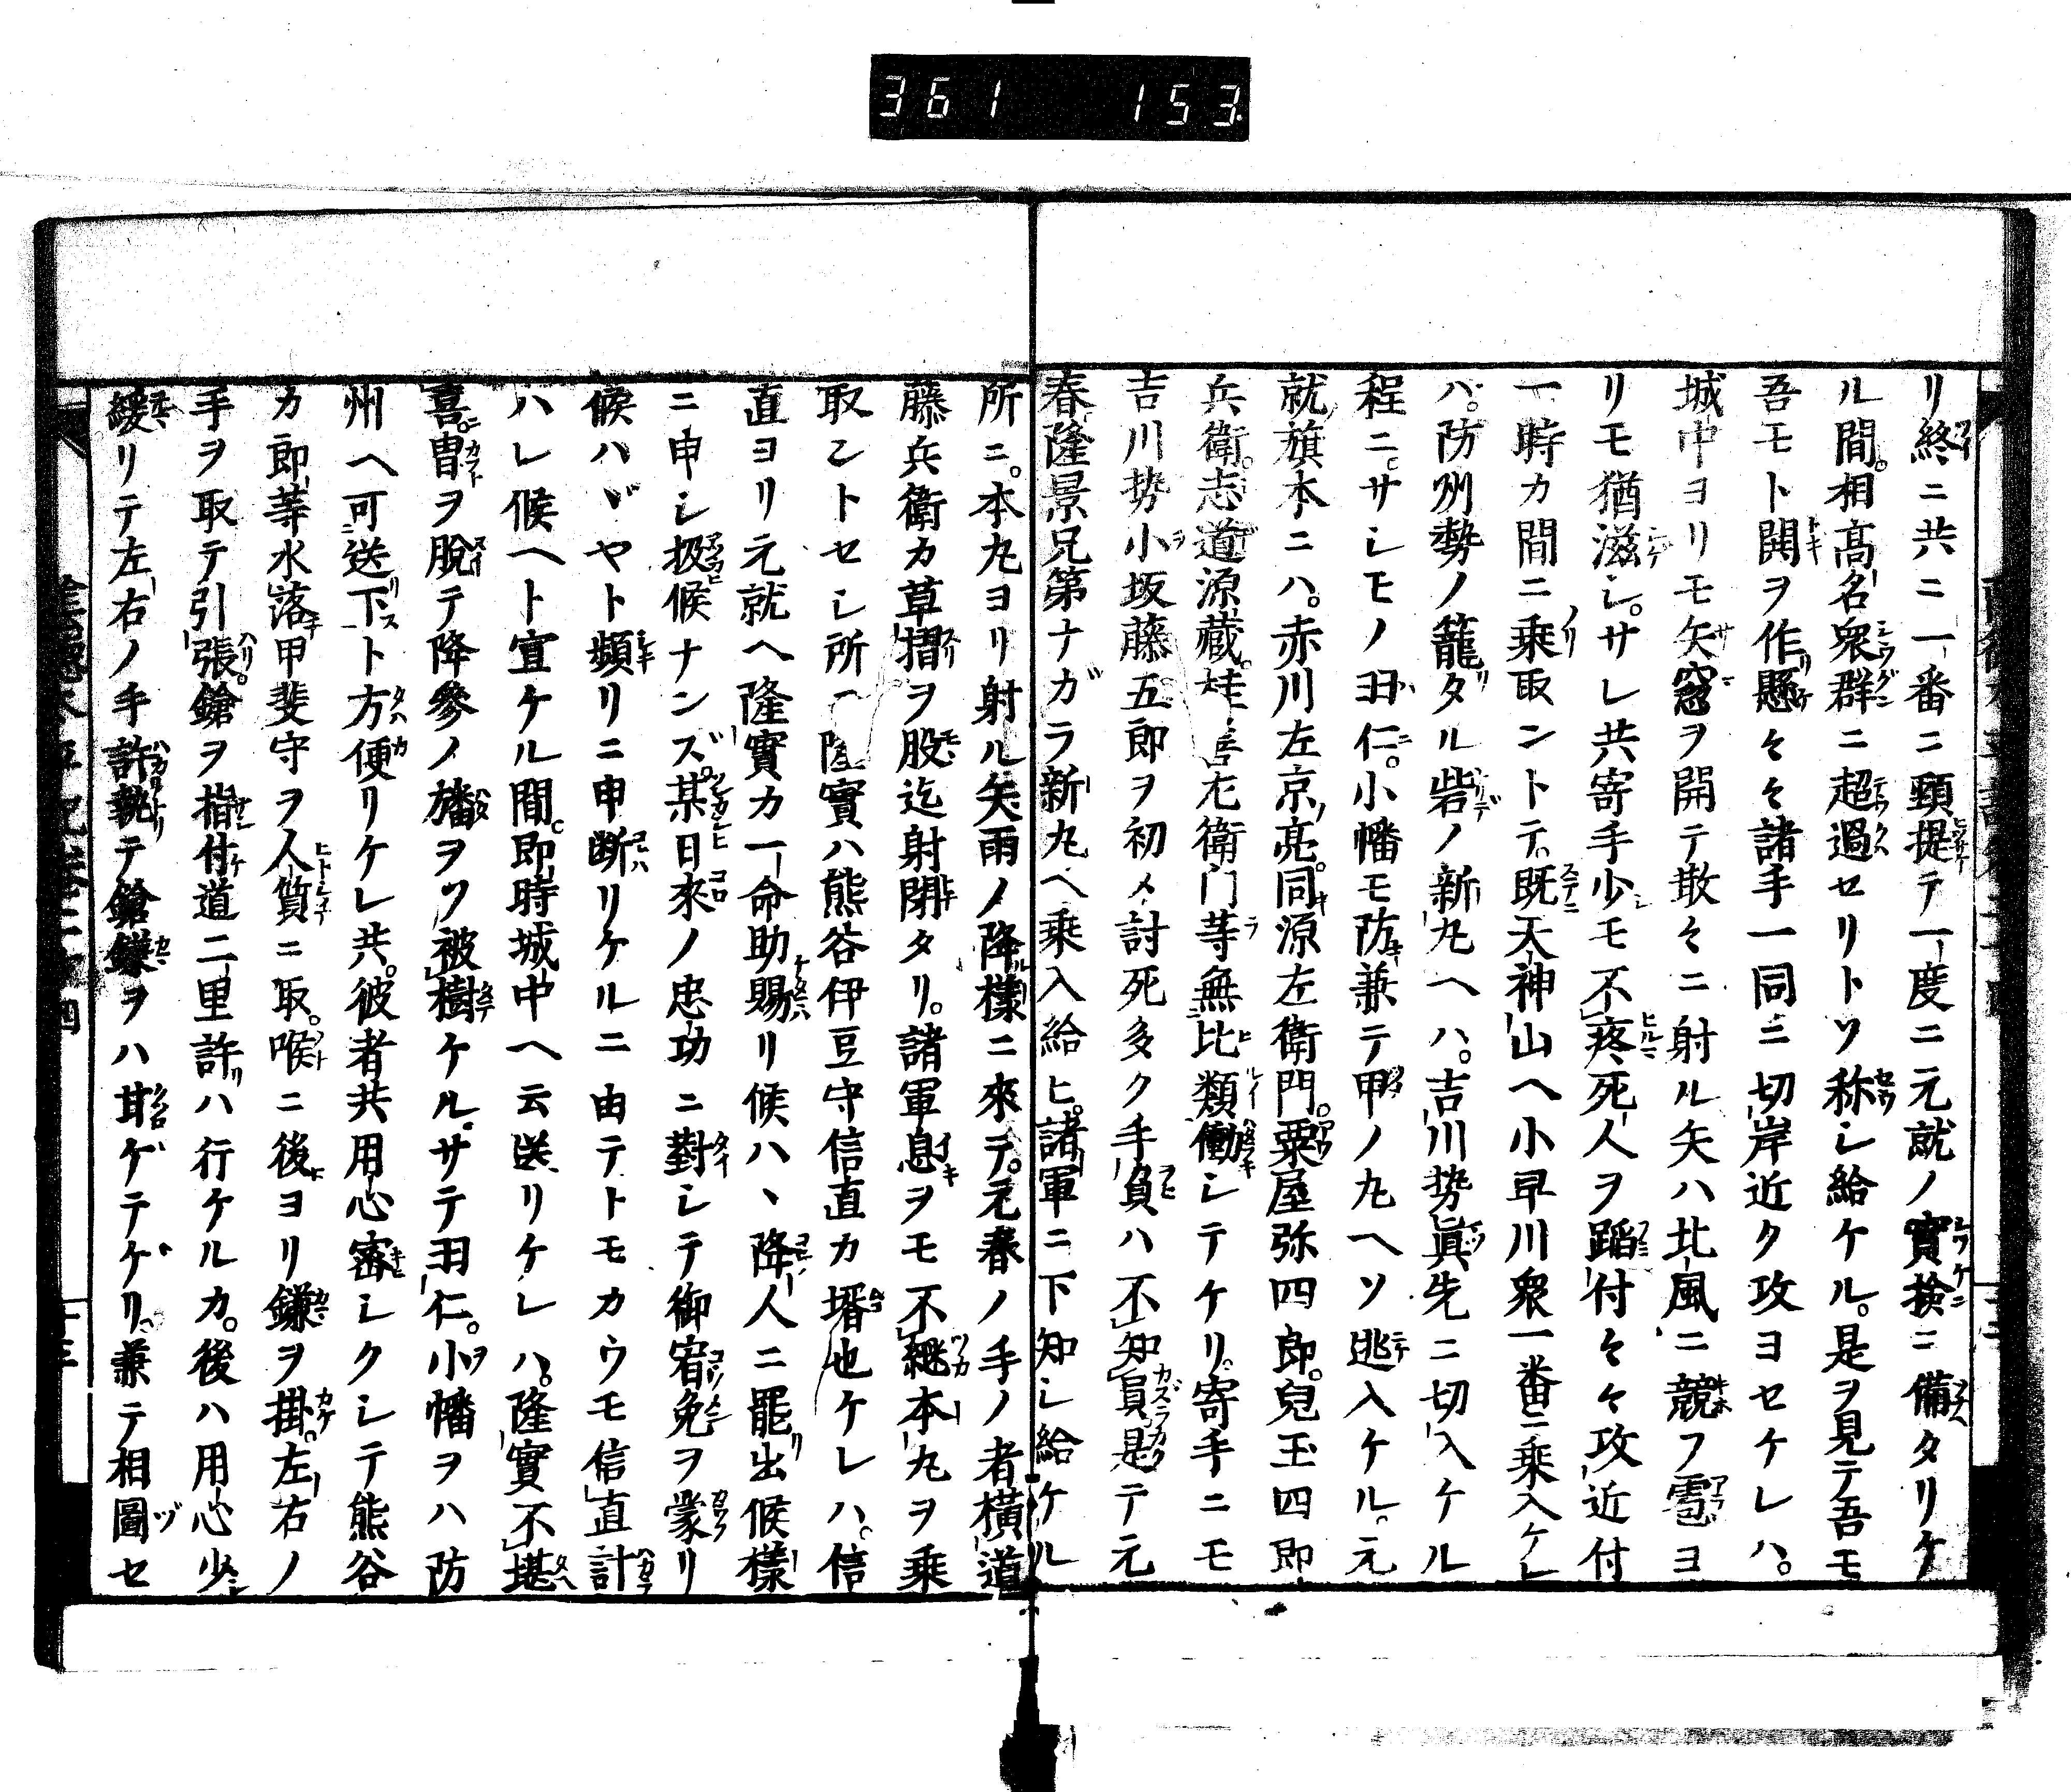 361 153
リ終ニ共ニ一番ニ頸提テ一度ニ元就ノ實撿ニ備タリケ
ル間。相高名衆群ニ超過セリトソ称シ給ケル。是ヲ見テ吾モ
吾モト鬨ヲ作懸々々諸手一同ニ切岸近ク攻ヨセケレハ。
城中ヨリモ矢窓ヲ開テ散々ニ射ル矢ハ北風ニ競フ雹ヨ
リモ猶滋シ。サレ共寄手少モ不疼死人ヲ蹈付々々攻近付
一時カ間ニ乗取ントテ。既天神山ヘ小早川衆一番ニ乗入ケレ
バ。防州勢ノ籠タル砦ノ新丸ヘハ。吉川勢眞先ニ切入ケル
程ニ。サシモノ羽仁。小幡モ防兼テ甲ノ丸ヘソ逃入ケル。元
就旗本ニハ。赤川左京亮。同源左衛門。粟屋弥四郎。兒玉四郎
兵衛。志道源蔵。桂善左衛門等無比類働シテケリ。寄手ニモ
吉川勢小坂藤五郎ヲ初メ討死多ク手負ハ不知員。是テ元
春隆景兄第ナガラ新丸ヘ乗入給ヒ。諸軍ニ下知シ給ケル
所ニ。本丸ヨリ射ル矢雨ノ降樣ニ來テ。元春ノ手ノ者横道
藤兵衛カ草摺ヲ股迄射閉タリ。諸軍息ヲモ不継本丸ヲ乗
取ントセシ所ニ隆實ハ熊谷伊豆守信直カ壻也ケレハ。信
直ヨリ元就ヘ隆實カ一命助賜リ候ハヽ降人ニ罷出候樣
ニ申シ扱候ナンズ。某日來ノ忠功ニ對シテ御宥免ヲ蒙リ
候ハヾヤト頻リニ申断リケルニ由テトモカウモ信直計
ハレ候ヘト宣ケル間。即時城中ヘ云送リケレハ。隆實不堪
喜。冑ヲ脱テ降參ノ旛ヲソ被樹ケル。サテ羽仁。小幡ヲハ防
州ヘ可送下ト方便リケレ共。彼者共用心審シクシテ熊谷
カ郎等水落甲斐守ヲ人質ニ取。喉ニ後ヨリ鎌ヲ掛。左右ノ
手ヲ取テ引張。鎗ヲ指付道二里許ハ行ケルカ。後ハ用心少
緩リテ左右ノ手許執テ鎗鎌ヲハ甘ゲテゲリ。兼テ相圖セ